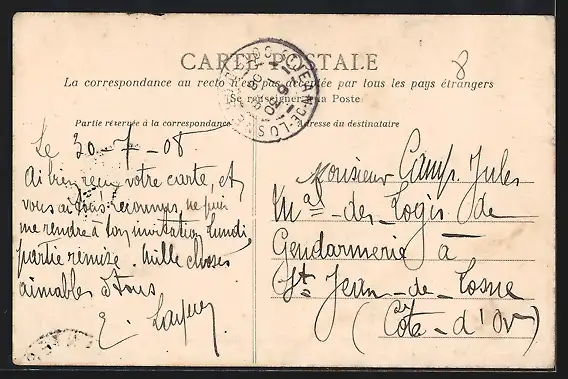 CARTE POSTALE
La correspondance au recto n'est pas acceptée par tous les pays étrangers
(Se renseigner à la Poste
Partie réservée à la correspondance
Adresse du destinataire
8
Le 30-7-08
Ai bien reçu votre carte, et
vous ai tous reconnus, ne puis
me rendre à ton invitation lundi
partie remise. Mille choses
aimables à tous
E.
Monsieur Camp. Jules
Mal des Logis de
Gendarmerie à
St Jean-de-Losne
(Côte-d'Or)